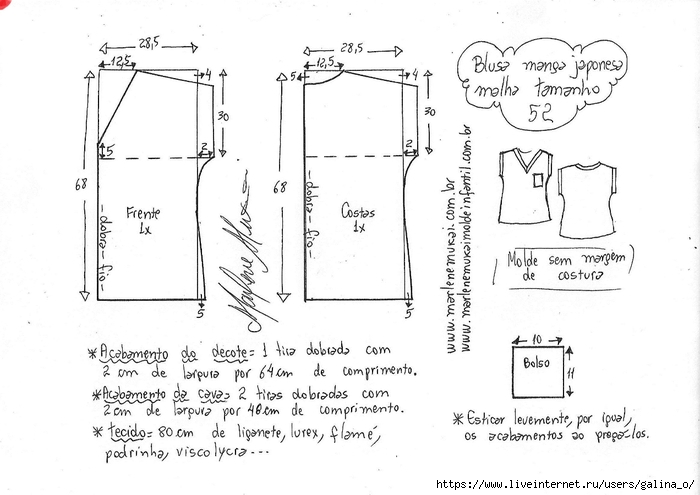 28,5
12,5
4
30
68
5
2
Frente
1x
- fio - dobra -
5
28,5
12,5
5
4
30
68
2
Costas
1x
- fio - dobra -
5
Blusa manga japonesa
malha tamanho
52
www.marlenemukai.com.br
www.marlenemukaimoldeinfantil.com.br
Molde sem margem
de costura
10
Bolso
11
* Acabamento do decote = 1 tira dobrada com
2 cm de largura por 64 cm de comprimento.
* Acabamento da cava = 2 tiras dobradas com
2 cm de largura por 48 cm de comprimento.
* tecido = 80 cm de liganete, lurex, flamê,
podrinha, viscolycra ...
* Esticar levemente, por igual,
os acabamentos ao pregá-los.
https://www.liveinternet.ru/users/galina_o/